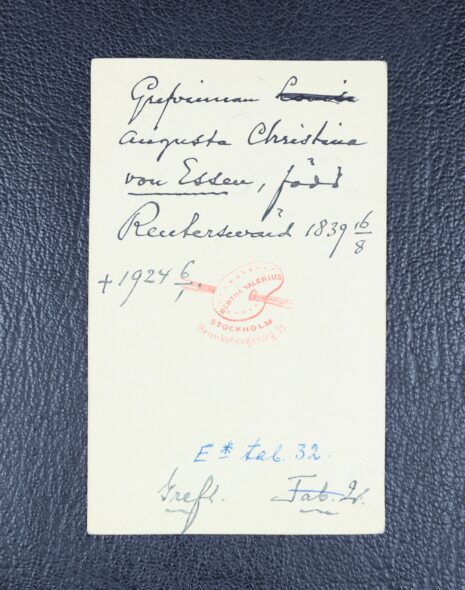 Grefvinnan Lovisa
Augusta Christina
von Essen, född
Reuterswärd 1839 16/8
+ 1924 6/1.
BERTHA VALERIUS
STOCKHOLM
Brunkebergstorg 15
E* tab. 32.
Grefl. Tab. 2.